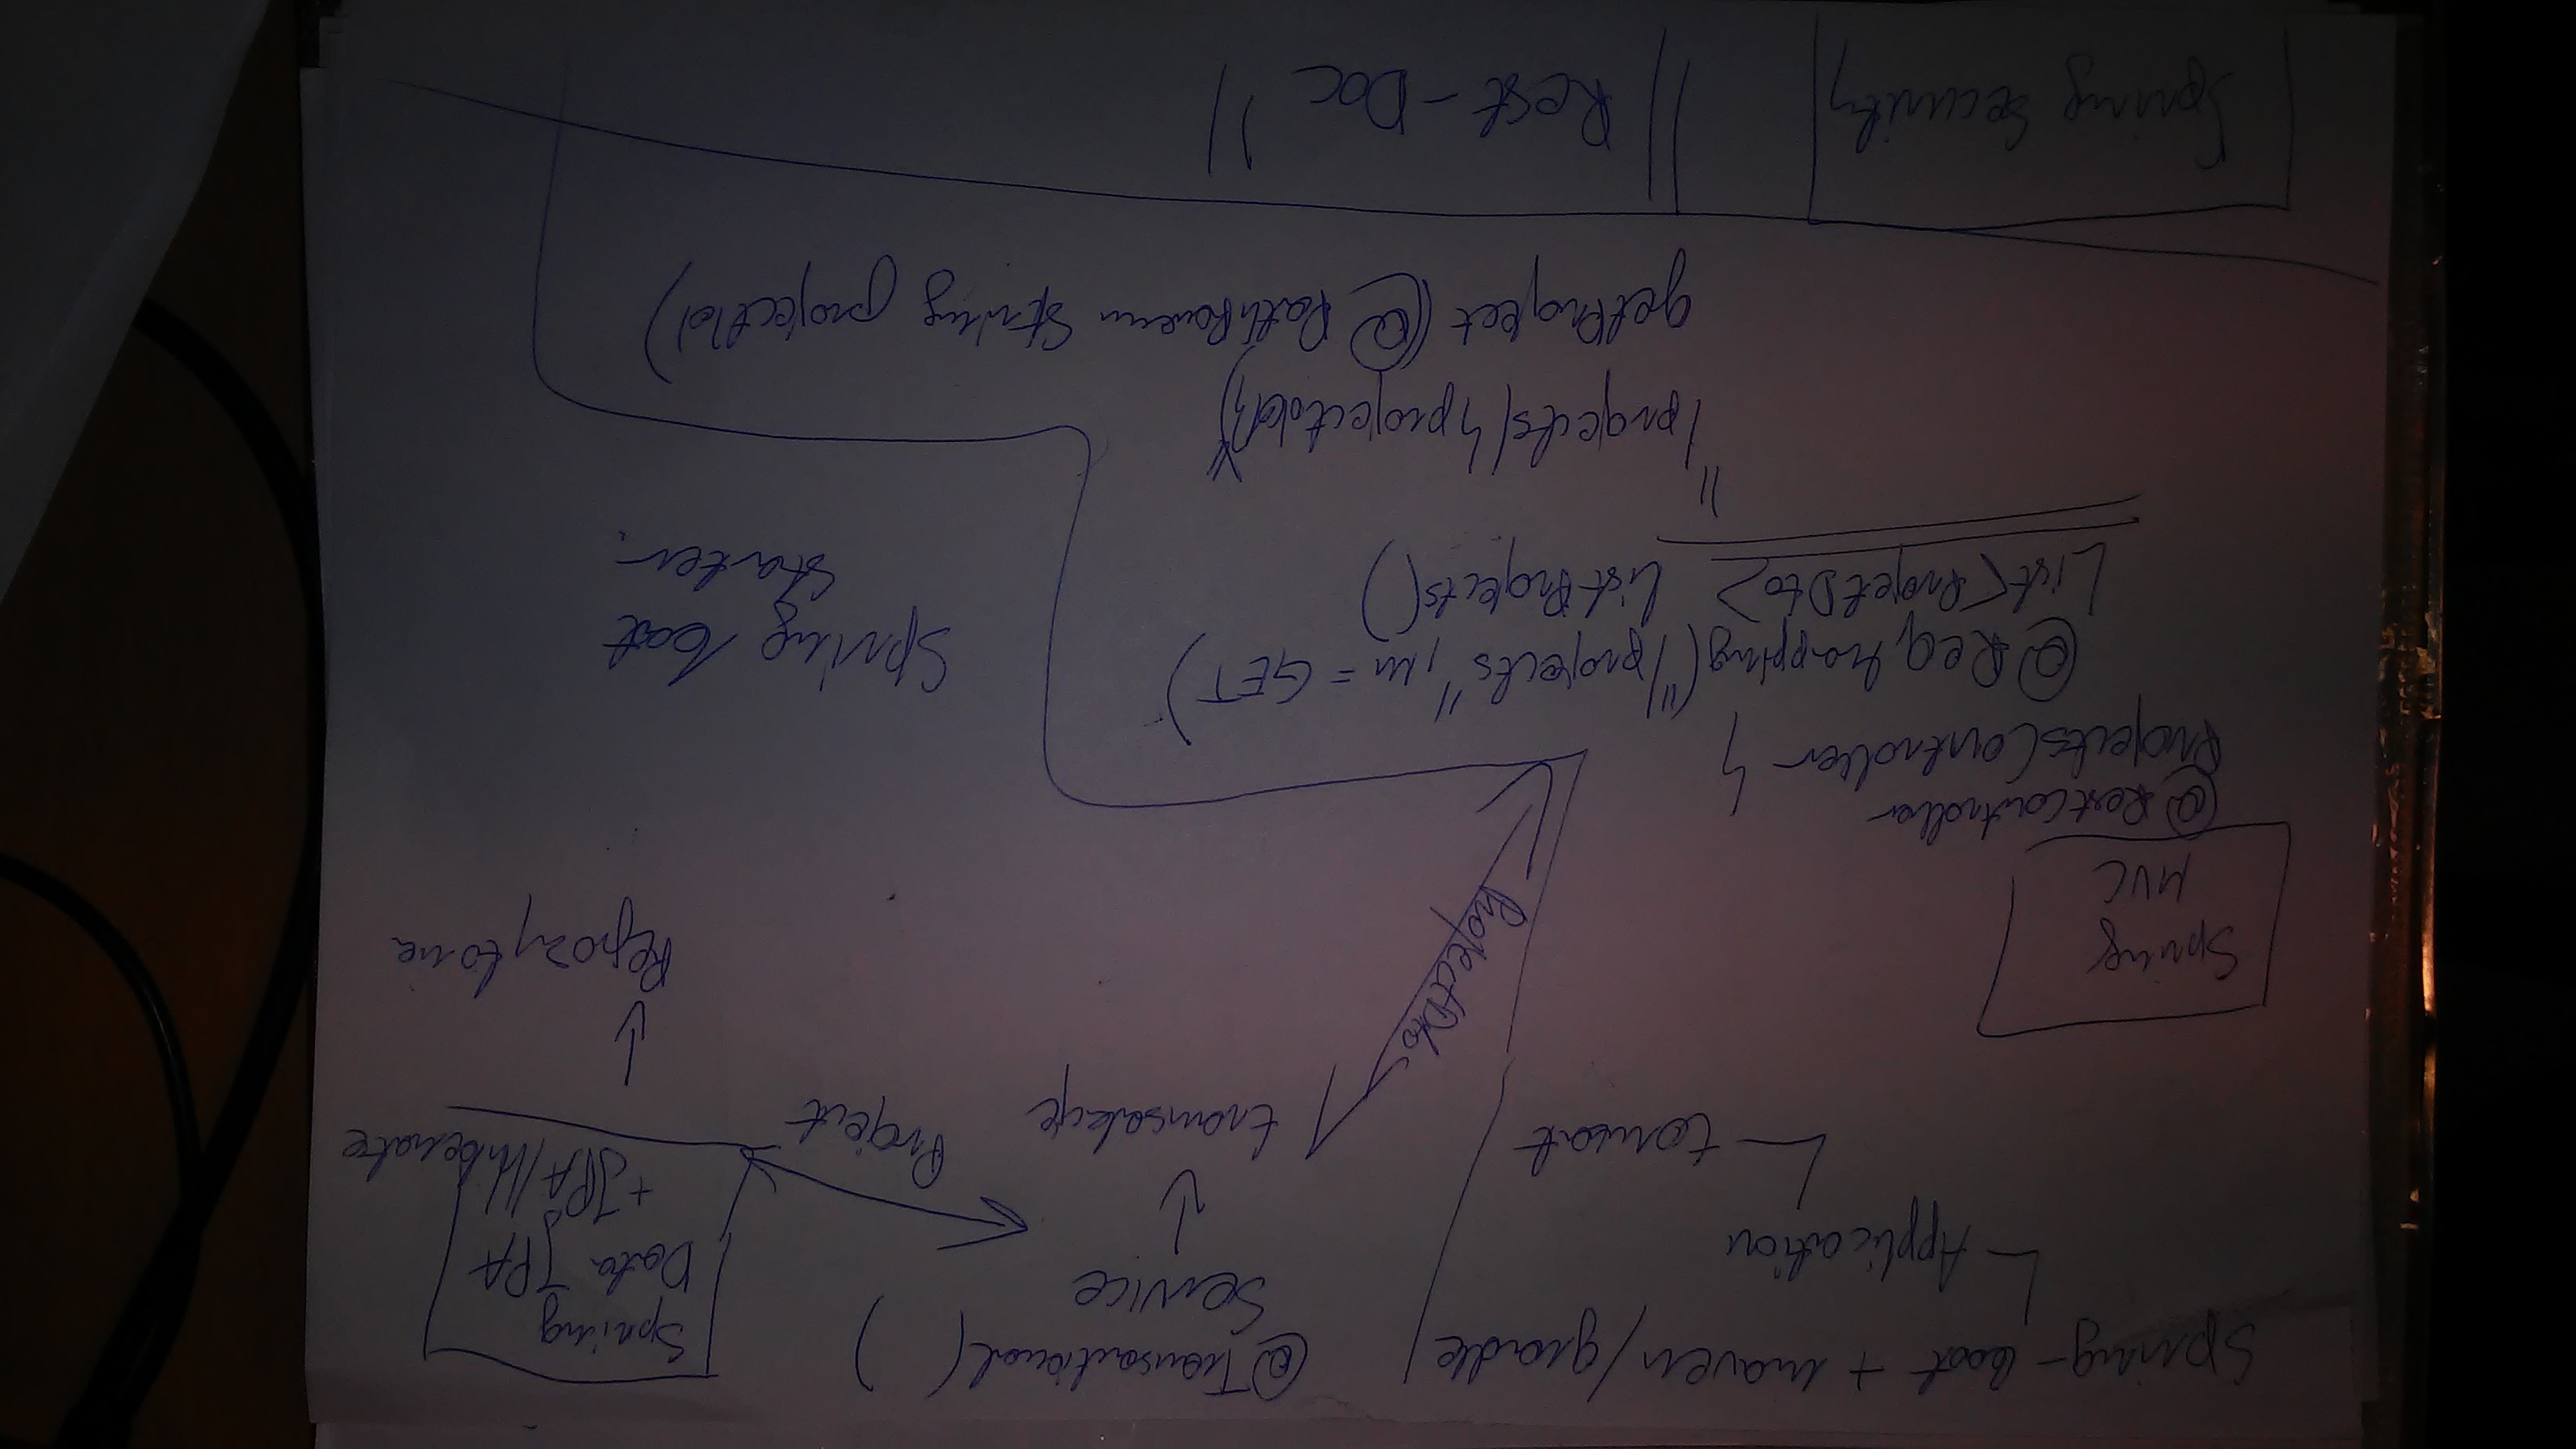 Spring-boot + maven/gradle
Application
tomcat
@Transactional( )
Service
transakcje
Project
Spring
Data JPA
+ JPA/Hibernate
Repozytoria
ProjectDto
Spring
MVC
@RestController
ProjectsController {
@ReqMapping("/projects", m = GET)
List<ProjetDto> listProjects()
"/projects/{projectId}"
getProject(@PathParam String projectId)
Spring boot
starter.
Spring Security
Rest-Doc